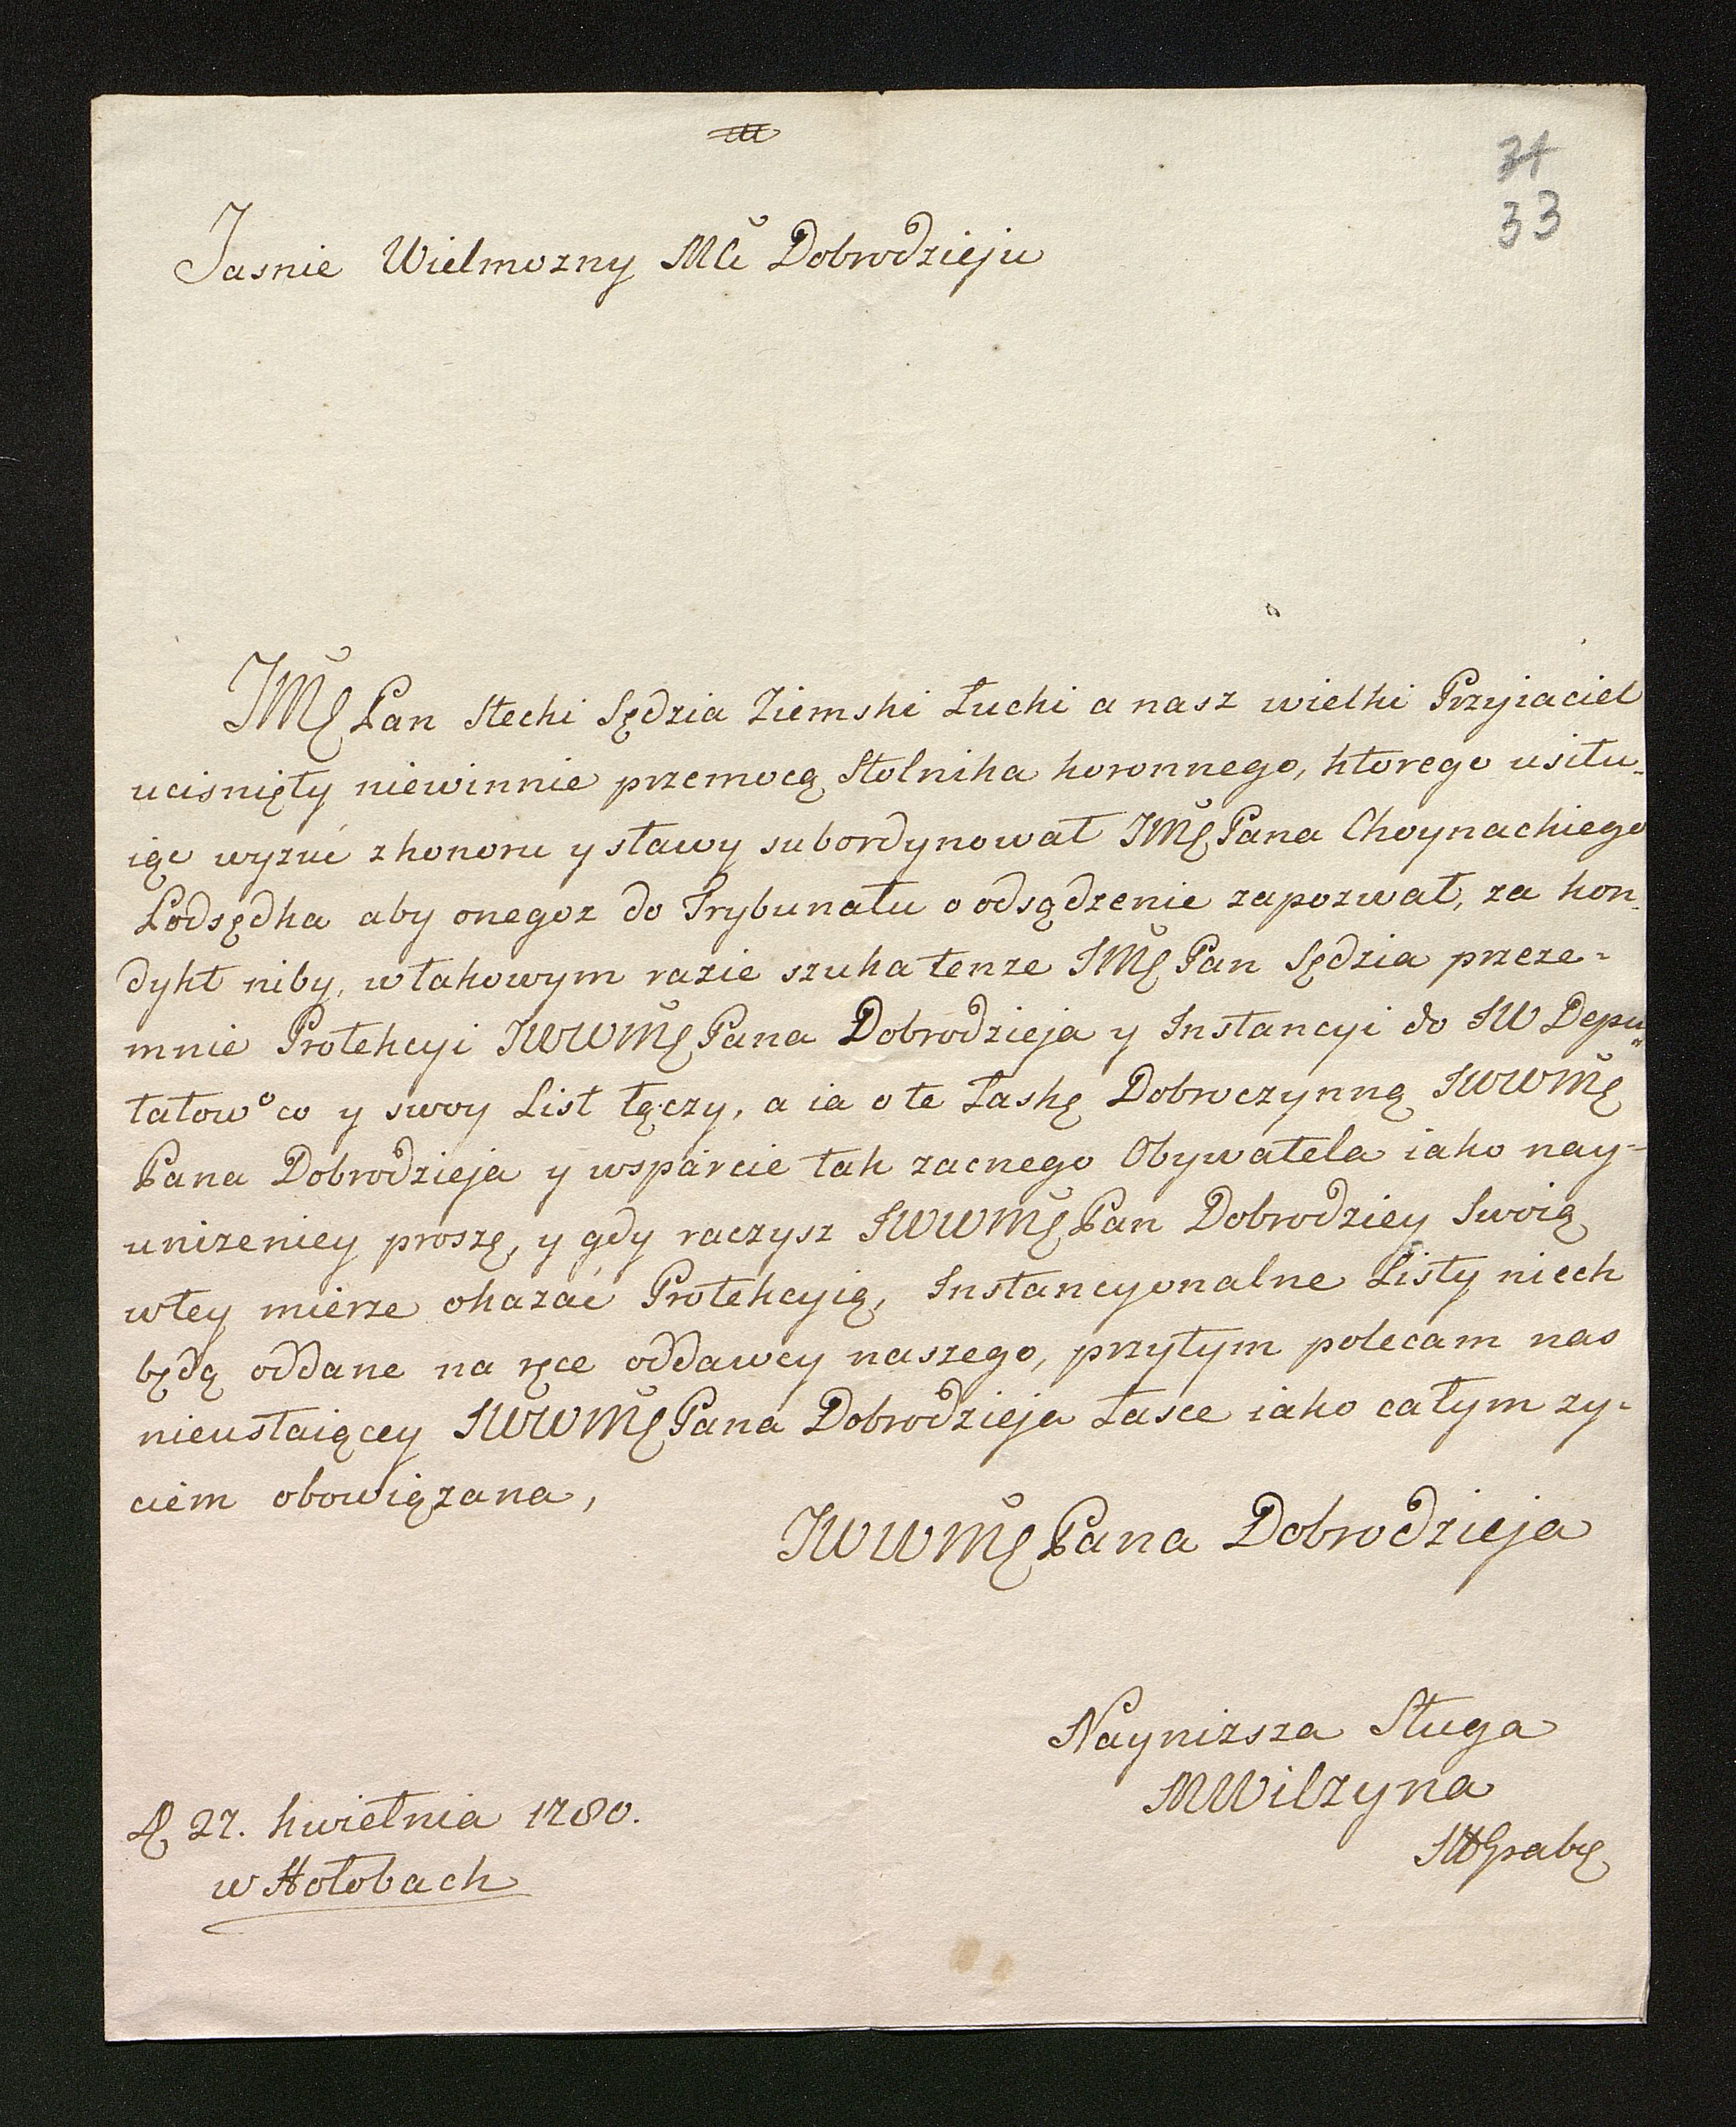 33
Jasnie Wielmozny Mći Dobrodzieju
JMć Pan Stecki Sędzia Ziemski Łucki a nasz wielki Przyiaciel
uciśnięty niewinnie przemocą Stolnika koronnego, ktorego usiłu-
iąc wyzuć z honoru y sławy subordynował JMć Pana Choynackiego
Podsędka aby onegoz do Trybunału o odsądzenie zapozwał, za kon-
dykt niby, w takowym razie szuka tenze JMć Pan Sędzia przeze-
mnie Protekcyi JWWMć Pana Dobrodzieja y Instancyi do JW Depu-
tatow co y swoy List łączy, a ia o te Łaskę Dobroczynną JWWMć
Pana Dobrodzieja y wsparcie tak zacnego Obywatela iako nay-
unizeniey proszę, y gdy raczysz JWWMć Pan Dobrodziey Swoią
w tey mierze okazać Protekcyią, Instancyonalne Listy niech
będą oddane na ręce oddawcy naszego, przytym polecam nas
nieustaiącey JWWMć Pana Dobrodzieja Łasce iako całym zy-
ciem obowiązana,
JWWMć Pana Dobrodzieja
Naynizsza Sługa
MWilzyna
D 27. kwietnia 1780.
w Hołobach